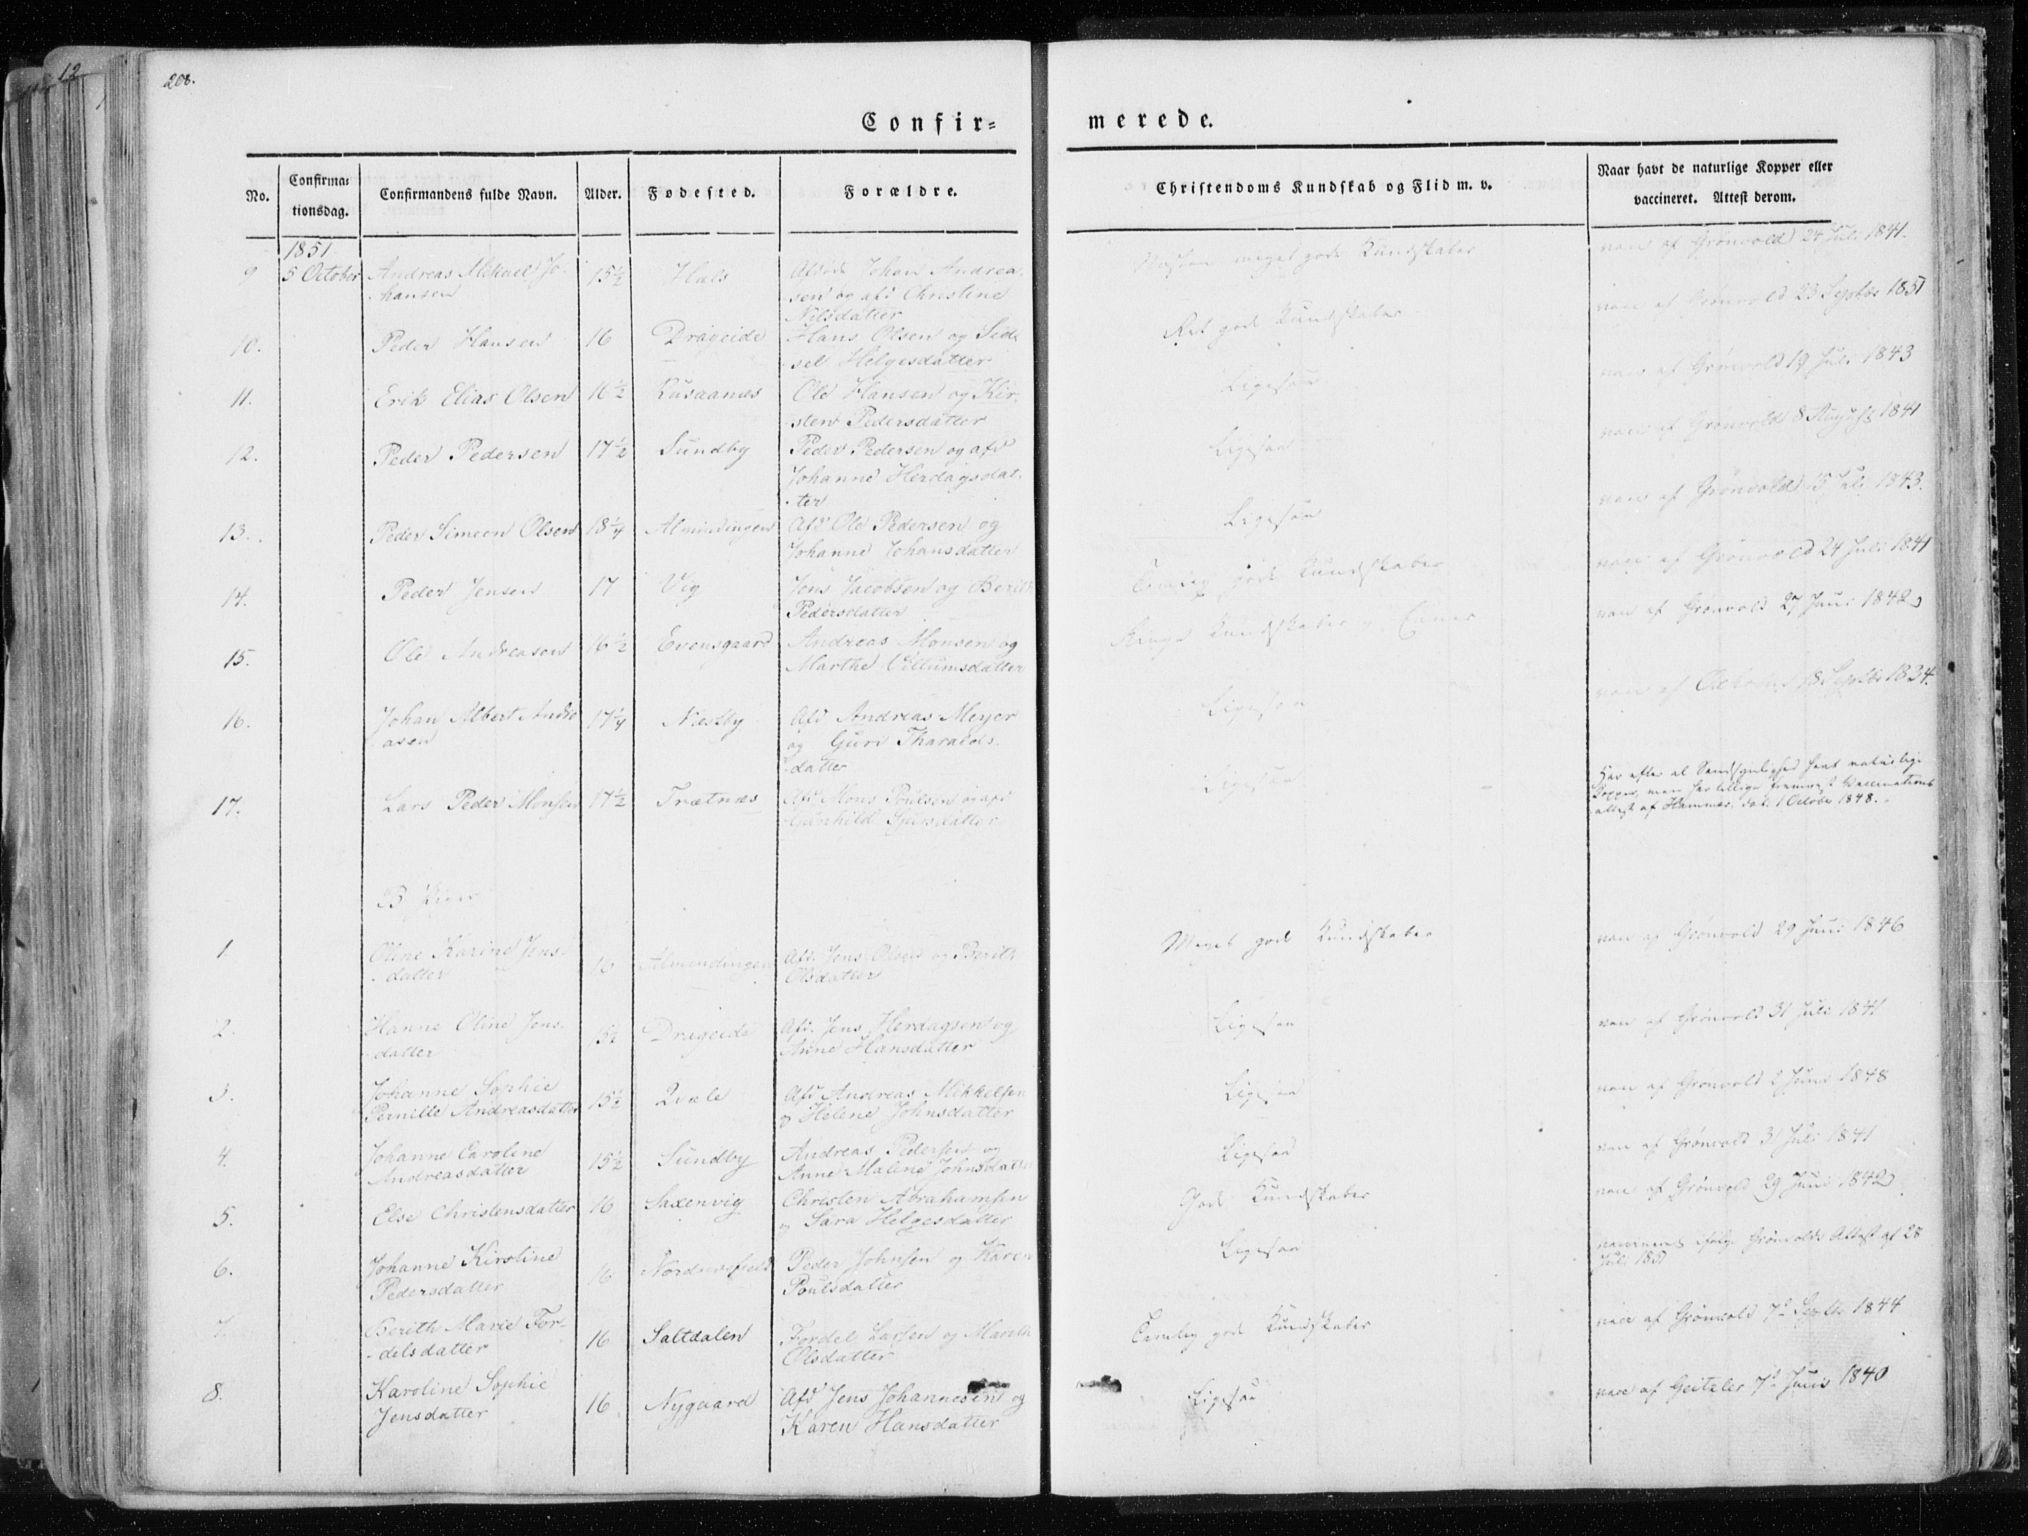 12
208.
Confir=
merede.
No.
Confirma-
tionsdag.
Confirmandens fulde Navn.
Alder.
Fødested.
Forældre.
Christendoms Kundskab og Flid m. v.
Naar havt de naturlige Kopper eller
vaccineret. Attest derom.
1851
9 5 October Andreas Mikael Jo-
hansen
15½ Hals
Johan Andrea-
sen og afd Christine
Nilsdatter
meget gode Kundskaber
vacc af Grönvold 24 Juli 1841.
10. Peder Hansen 16 Drageide Hans Olsen og Sid-
sel Helgesdatter
Ret gode Kundskaber
vacc af Grönvold 23 Septbr 1851
11. Erik Elias Olsen 16½ Rusaanes Ole Hansen og Kir-
sten Pedersdatter
Ligesaa
vacc af Grönvold 19 Juli 1843
12. Peder Pedersen 17½ Sundby Peder Pedersen og afd
Johanne Herdagsdat-
ter
Ligesaa
vacc af Grönvold 8 August 1841
13. Peder Simeon Olsen 18¼ Almindingen Afd Ole Pedersen og
Johanne Johansdatter
Ligesaa
vacc af Grönvold 15 Juli 1843.
14. Peder Jensen 17 Vig Jens Jacobsen og Berith
Pedersdatter
Temlig gode Kundskaber
vacc af Grönvold 24 Juli 1841
15. Ole Andreasen 16½ Evensgaard Andreas Monsen og
Marthe Villumsdatter
Kundskaber
vacc af Grönvold 27 Juni 1842
16. Johan Albert Andre-
asen
17¼ Næstby Afd Andreas Meyer
og Guri Tharalds-
datter
Ligesaa
vacc af 18 Septbr 1834.
17. Lars Peder Monsen 17½ Trætnæs Afd Mons Poulsen og afd
Gunhild Sjursdatter
Ligesaa
Har efter al Sandsynlighed havt naturlige
Kopper, men har tillige fremvist Vaccinations
attest af Hammer, dat. 1 October 1848.
B. Piger
1. Oline Karine Jens-
datter
16 Almindingen Afd. Jens Olsen og Berith
Olsdatter
Meget gode Kundskaber
vacc af Grönvold 29 Juni 1846
2. Hanne Oline Jens-
datter
15½ Drageide Afd. Jens Herdagsen og
Anne Hansdatter
Ligesaa
vacc af Grönvold 31 Juli 1841
3. Johanne Sophie
Pernille Andreasdatter
15½ Qvæle Afd Andreas Mikkelsen
og Helene Johnsdatter
Ligesaa
vacc af Grönvold 2 Juni 1848
4. Johanne Caroline
Andreasdatter
15½ Sundby Andreas Pedersen og
Anne Malene Johnsdatter
Ligesaa
vacc af Grönvold 31 Juli 1841
5. Else Christensdatter 16 Saxenvig Christen Abrahamsen
og Sara Helgesdatter
Gode Kundskaber
vacc af Grönvold 29 Juni 1842
6. Johanne Kirstine
Pedersdatter
16 Peder Johnsen og Karen
Poulsdatter
Ligesaa
vaccineret ifølge Grönvolds Attest af 28
Juli 1851
7. Berith Marie For-
delsdatter
16 Saltdalen Fordel Larsen og Marith
Olsdatter
Temlig gode Kundskaber
vacc af Grönvold 7d Septbr 1844
8. Karoline Sophie
Jensdatter
16 Nygaard Afd Jens Johannesen og
Karen Hansdatter
Ligesaa
vacc af Geitzler 7d Juni 1840